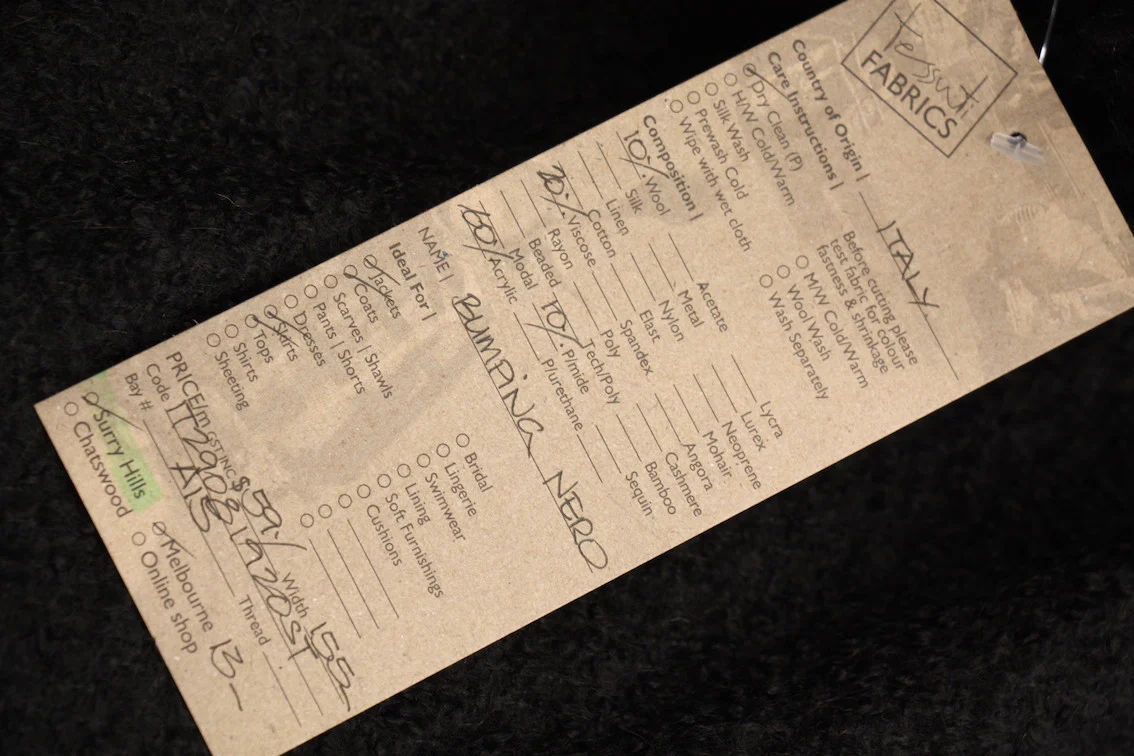 Tessuti
FABRICS
Country of Origin | ITALY
Care Instructions |
Dry Clean (P)
H/W Cold/Warm
Silk Wash
Prewash Cold
Wipe with wet cloth
Before cutting please
test fabric for colour
fastness & shrinkage
M/W Cold/Warm
Wool Wash
Wash Separately
Composition |
10% Wool
Silk
Linen
Cotton
20% Viscose
Rayon
Beaded
Modal
60% Acrylic
Acetate
Metal
Nylon
Elast
Spandex
Poly
Tech/Poly
10% P/mide
P/urethane
Lycra
Lurex
Neoprene
Mohair
Angora
Cashmere
Bamboo
Sequin
NAME | BUMPING NERO
Ideal For |
Jackets
Coats
Scarves | Shawls
Pants | Shorts
Dresses
Skirts
Tops
Shirts
Sheeting
Bridal
Lingerie
Swimwear
Lining
Soft Furnishings
Cushions
PRICE/m GST INC $59/ Width 155
Code
Bay # A15 Thread
Surry Hills
Chatswood
Melbourne 13
Online shop